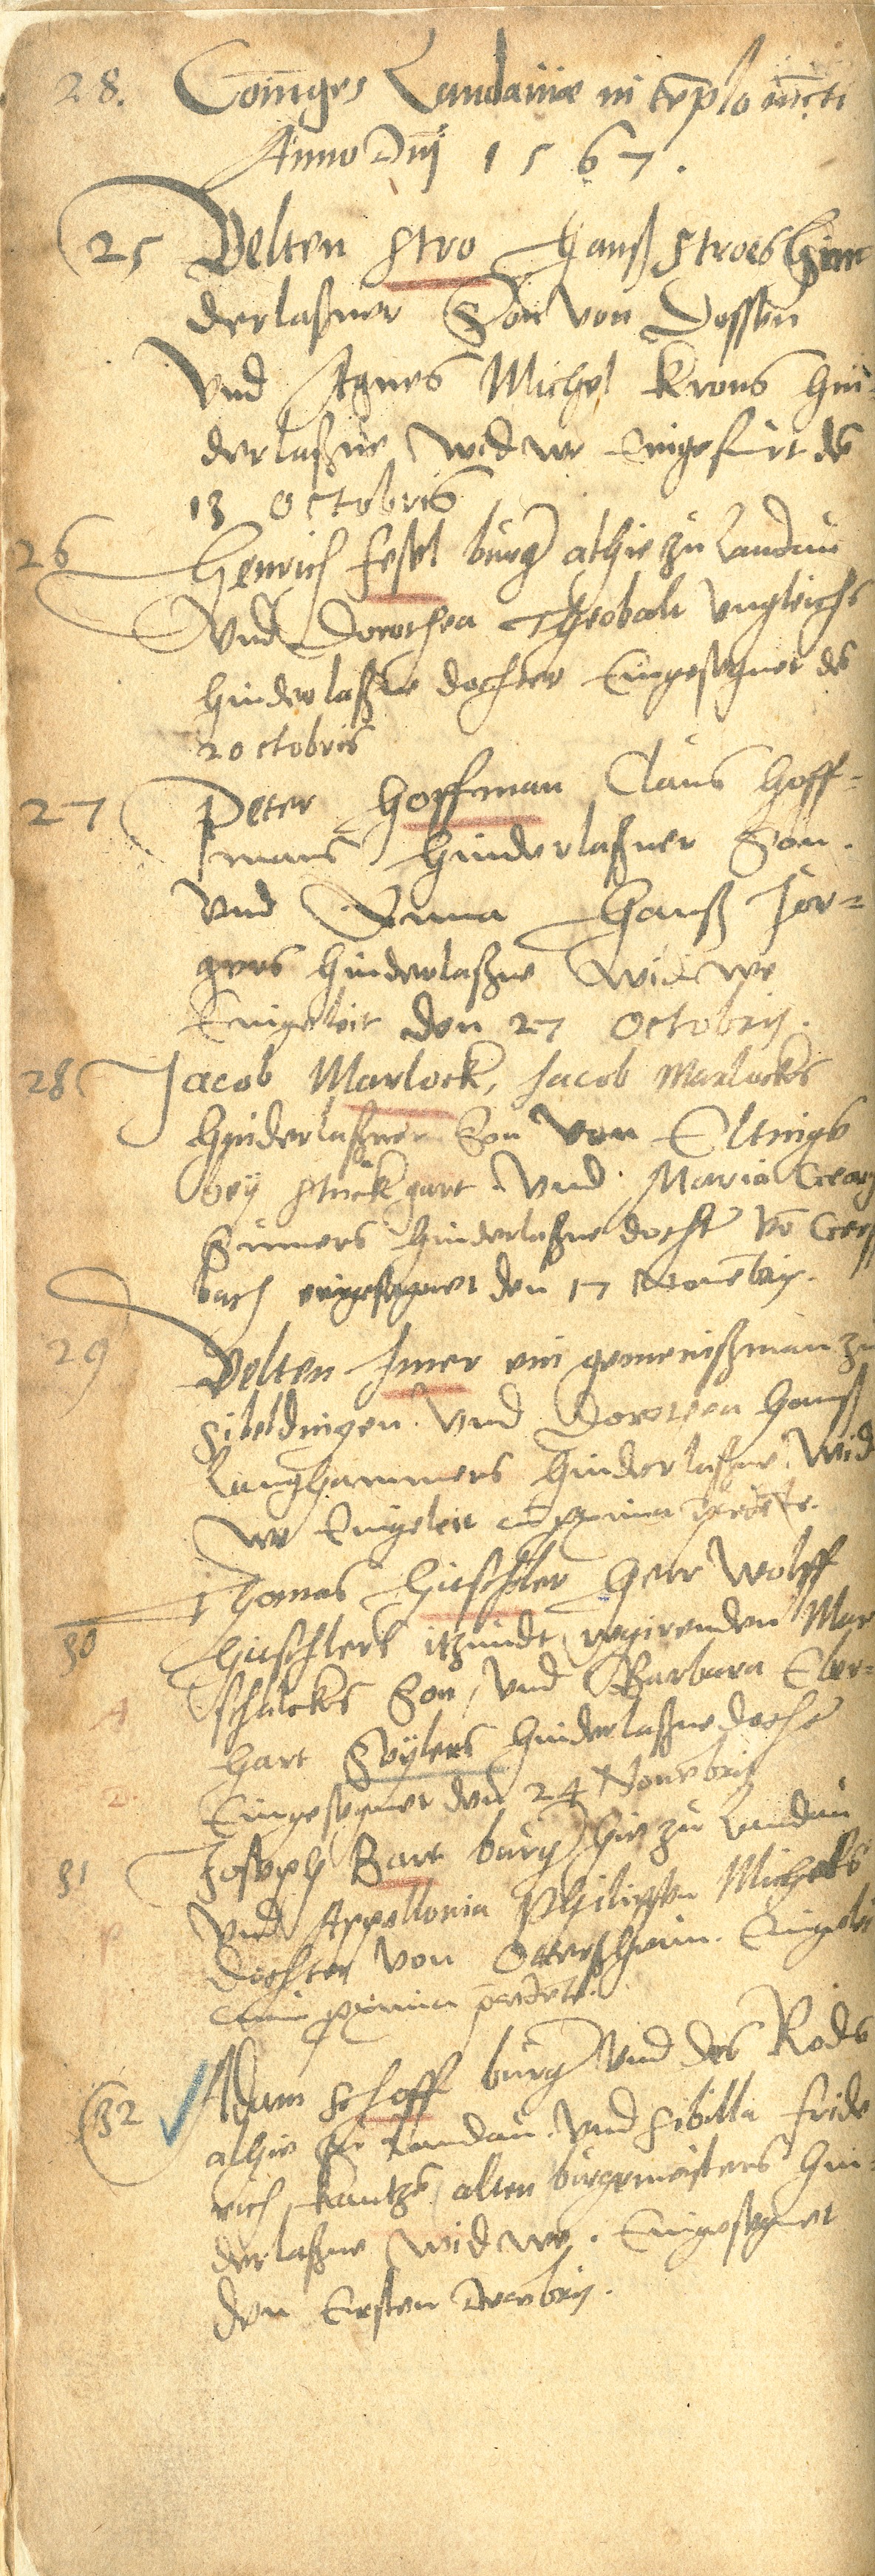 28. Coniuges Landaviae in templo iuncti
Anno Dni 1567.
25 Velten Stro Hanß Stroes hin
derlaßner Son von Dossen
Vnd Agnes Michel Krons hin-
derlaßne Widwe Eingefürt den
13 Octobris
26 Henrich Fesel burger alhie zu Landau
Vnd Dorothea Theobalt Vngleichs
hinderlaßne dochter Eingesegnet den
20 ctobris
27 Peter Hoffman Claus Hoff-
mans hinderlaßner Son.
Vnd Anna Hanß Jor-
gers hinderlaßne Widwe
Eingeleit den 27 Octobris.
28 Jacob Marlock, Jacob Marlocks
hinderlaßner Son von Eltings
bey Stuckgart. Vnd Maria Georg
hinderlaßne dochter von
bach eingesegnet den 17 Nouembris.
29 Velten Imer ein gemeinßman zu
Sibeldingen. Vnd Dorothea Hanß
Langhammers hinderlaßne Wid
we Eingeleit cum precedente.
Thomas Hitschler Herr Wolff
30 Hitschlers itzundt regirenden Mar
schalcks Son, Vnd Barbara Eber-
hart Seylers hinderlaßne dochter
Eingesegnet den 24 Nouembris
31 Joseph Bart burger hie zu Landau
Vnd Appollonia Philipsen Michels
Dochter von Otterßheim. Eingeleit
cum precedente.
32 Adam Schoff burger Vnd des Rods
alhie zu Landau. Vnd Sibilla Fride
rich Kantzs, alten burgemeisters hin-
derlaßne Widwe. Eingesegnet
den Ersten Decembris.